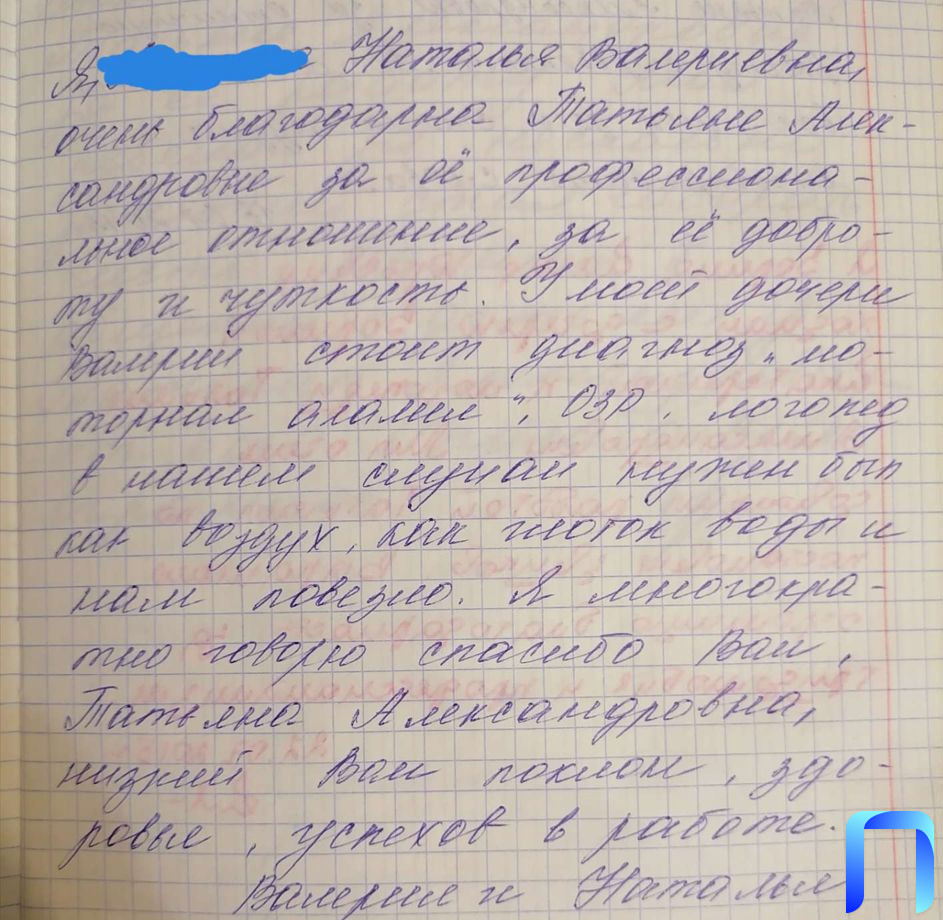 Я, Наталья Валериевна,
очень благодарна Татьяне Алек-
сандровне за её профессиона-
льное отношение, за её добро-
ту и чуткость. У моей дочери
Валерии стоит диагноз „мо-
торная алалия", ОЗР, логопед
в нашем случаи нужен был
как воздух, как глоток воды и
нам повезло. Я многокра-
тно говорю спасибо Вам,
Татьяна Александровна,
низкий Вам поклон, здо-
ровья, успехов в работе.
Валерия и Наталья